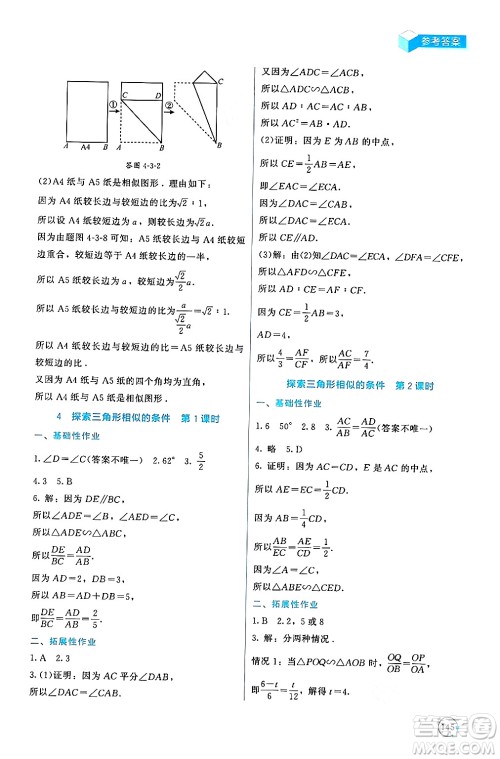 参考答案
A A4 B
①
C D
A B
②
C
B
答图 4-3-2
(2)A4 纸与 A5 纸是相似图形．理由如下：
因为 A4 纸较长边与较短边的比为√2：1，
所以设 A4 纸较短边为 a，则较长边为√2a．
因为由题图 4-3-8 可知：A5 纸较长边与 A4 纸较短边重合，较短边等于 A4 纸较长边的一半，
所以 A5 纸较长边为 a，较短边为 √2/2 a．
所以 A5 纸较长边与较短边的比为 a/(√2/2 a) = √2：1．
所以 A4 纸较长边与较短边的比等于 A5 纸较长边与较短边的比．
又因为 A4 纸与 A5 纸的四个角均为直角，
所以 A4 纸与 A5 纸是相似图形．
4 探索三角形相似的条件 第 1 课时
一、基础性作业
1.∠A=∠D(答案不唯一) 2.62° 3. 5/2
4.3 5.B
6.解：因为 DE∥BC，
所以∠ADE=∠ABC，∠AED=∠ACB．
所以△ADE∽△ABC．
所以 DE/BC = AD/AB．
因为 AD=2，DB=3，
所以 AB=AD+DB=5．
即 DE/BC = AD/AB = 2/5．
二、拓展性作业
1.A 2.3
3.(1)证明：因为 AC 平分∠DAB，
所以∠DAC=∠CAB．
又因为∠ADC=∠ACB，
所以△ADC∽△ACB．
所以 AD：AC=AC：AB．
所以 AC²=AB·AD．
(2)证明：因为 E 为 AB 的中点，
所以 CE= 1/2 AB=AE．
即∠EAC=∠ECA．
因为∠DAC=∠CAB，
所以∠DAC=∠ECA．
所以 CE∥AD．
(3)解：由(2)知∠DAC=∠ECA，∠DFA=∠EFC，
所以△AFD∽△CFE．
所以 AD/CE = AF/CF．
因为 CE= 1/2 AB=3，
AD=4，
所以 4/3 = AF/CF．所以 AC/AF = 7/4．
探索三角形相似的条件 第 2 课时
一、基础性作业
1.6 50° 2.8 3. AB/AC = AD/AE (答案不唯一)
4.略 5.D
6.证明：因为 AC=CD，
所以 AC= 1/2 AD．
因为 AB/AD = AE/CD = 1/2，
所以 AB/AC = AE/EC = 1/4．
所以 AB/AC = AE/EC = BE/AE．
所以△ABE∽△ACD．
二、拓展性作业
1.B 2.2，5 或 8
3.解：分两种情况．
情况 1：当△POQ∽△AOB 时， OQ/OB = OP/OA．
即 (6-t)/6 = t/12，解得 t=4．
145